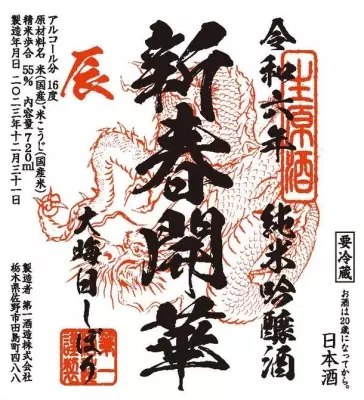 令和六年
生原酒
純米吟醸酒
要冷蔵
お酒は20歳になってから。
日本酒
新春開華
大晦日しぼり
第一
謹製
辰
アルコール分 16度
原材料名 米(国産)、米こうじ(国産米)
精米歩合 55% 内容量 720ml
製造年月日 二〇二三年十二月三十一日
製造者 第一酒造株式会社
栃木県佐野市田島町四八八